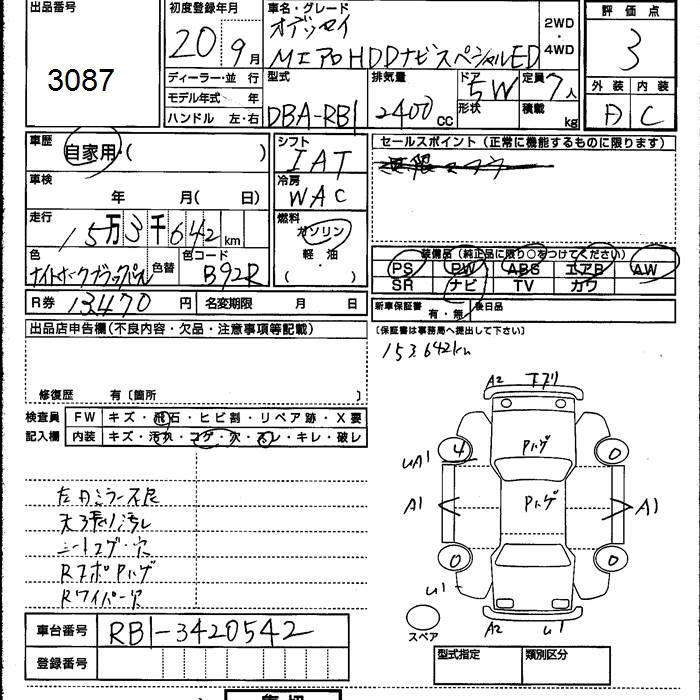 出品番号
3087
初度登録年月
20年9月
車名・グレード
オデッセイ
M エアロ HDDナビスペシャルED
2WD・4WD
評価点
3
ディーラー・並行
モデル年式 年
ハンドル 左・右
型式
DBA-RB1
排気量
2400cc
ドア 5 形状 W
定員 7人
積載 kg
外装 内装
D C
車歴
自家用・( )
車検
年 月( 日)
走行
15万3千642km
色
ナイトホークブラックパール
色替
色コード
B92R
R券 13470円
名変期限 月 日
シフト
IAT
冷房
WAC
燃料
ガソリン
軽・油
( )
セールスポイント(正常に機能するものに限ります)
装備品(純正品に限り○をつけてください)
PS PW ABS エアB AW
SR ナビ TV カワ
新車保証書 有・無
後日品
(保証書は事務局へ提出して下さい)
153642km
出品店申告欄(不良内容・欠品・注意事項等記載)
修復歴 有〔箇所 〕
検査員記入欄
FW キズ・飛石・ヒビ割・リペア跡・X要
内装 キズ・汚れ・コゲ・穴・スレ・キレ・破レ
左ドアミラー不良
天張り汚レ
シートコゲ・穴
RスポPハゲ
Rワイパー欠
A2 下ブリ
Pハゲ
4 0
UA1
A1 Pハゲ A1
0 0
U1
A2 U1
スペア
車台番号
RB1-3420542
登録番号
型式指定
類別区分